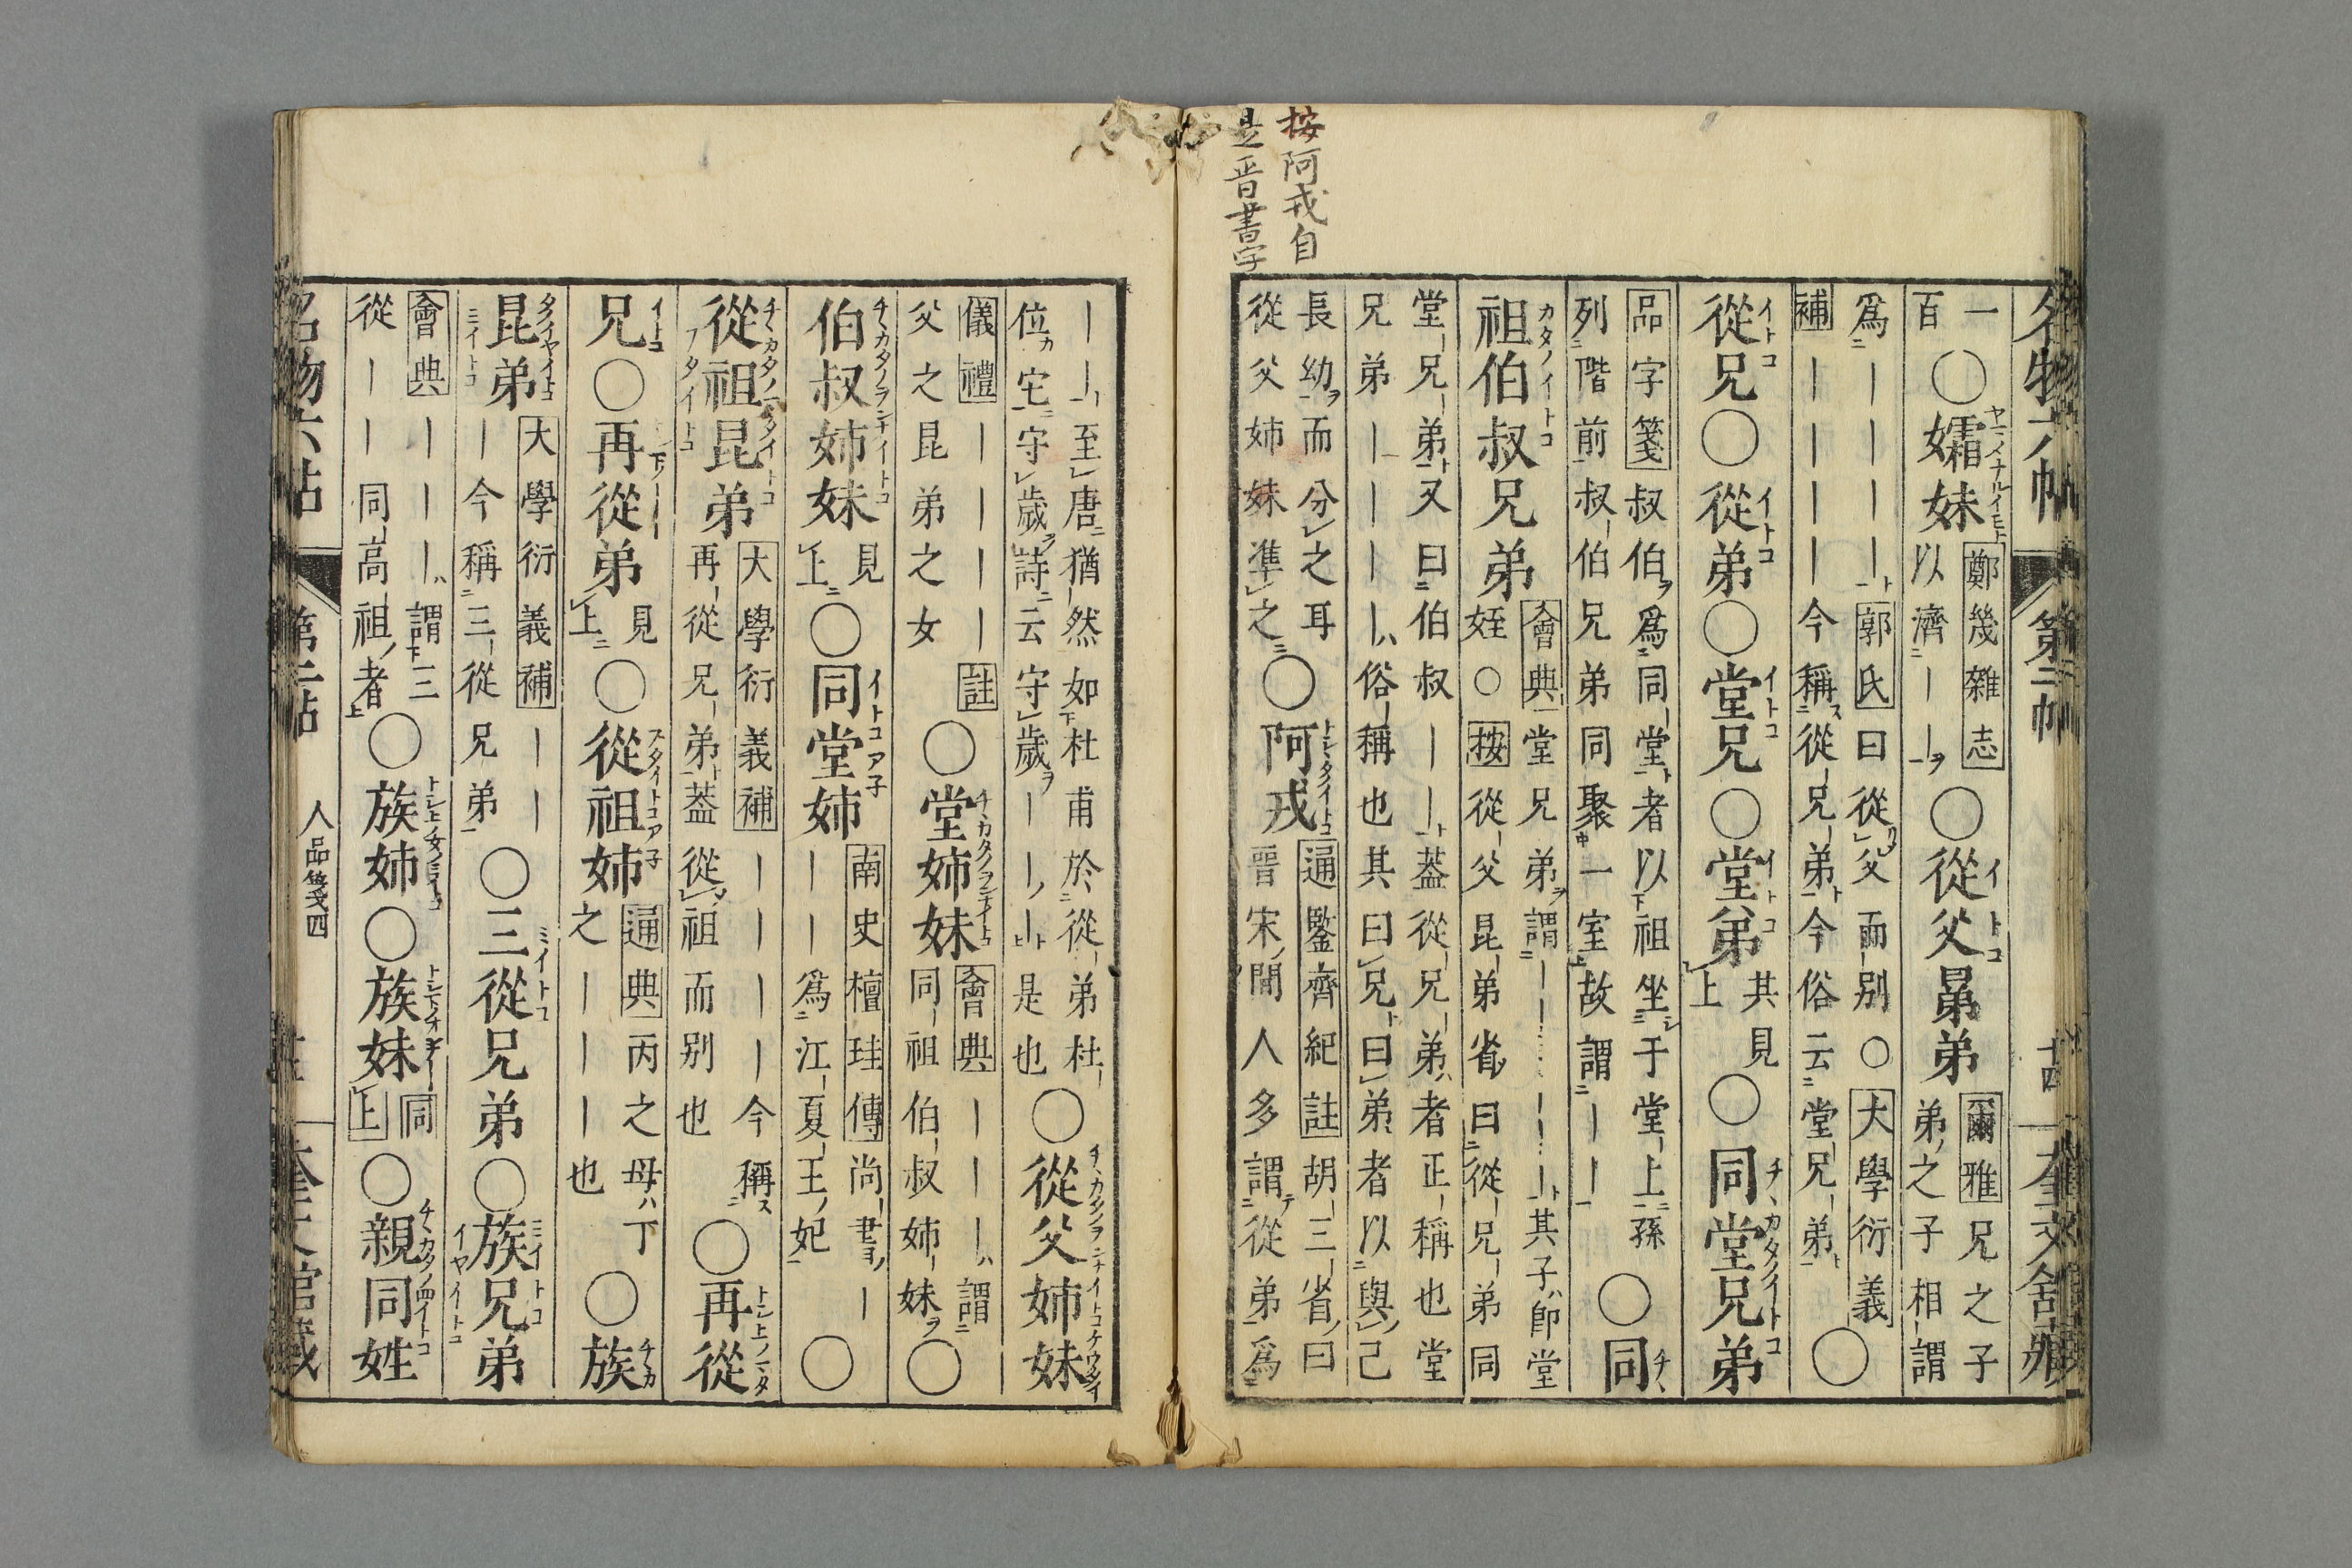 按阿戎自
是晋書字
名物六帖 第二帖 十四 奎文舍藏
一
百
○孀妹
鄭幾雜志
以濟一一
○從父晜弟
爾雅兄之子
弟之子相謂
爲一一一一郭氏曰從父而別○大學衍義
補一一一一今稱從兄弟今俗云堂兄弟
○
從兄○從弟○堂兄○堂弟
其見
上
○同堂兄弟
品字箋叔伯爲同堂者以祖坐于堂上孫
列階前叔伯兄弟同聚一室故謂一一
○同
祖伯叔兄弟
會典堂兄弟謂一一一一其子即堂
姪○按從父昆弟省曰從兄弟同
堂兄弟又曰伯叔一一蓋從兄弟者正稱也堂
兄弟一一一一俗稱也其曰兄曰弟者以與己
長幼而分之耳
從父姉妹準之
○阿戎
通鑒齊紀註胡三省曰
晉宋間人多謂從弟爲
一一至唐猶然如杜甫於從弟杜
位宅守歲詩云守歲一一一是也
○從父姉妹
儀禮一一一一註
父之昆弟之女
○堂姉妹
會典一一謂
同祖伯叔姉妹
○
伯叔姉妹
見
上
○同堂姉
南史檀珪傳尚書一
一一爲江夏王妃
○
從祖昆弟
大學衍義補一一一一今稱
再從兄弟蓋從祖而別也
○再從
兄○再從弟
見
上
○從祖姉
通典丙之母丁
之一一一也
○族
昆弟
大學衍義補一一
一今稱三從兄弟
○三從兄弟○族兄弟
會典一一一謂三
從一一同高祖者
○族姉○族妹
同
上
○親同姓
名物六帖 第二帖 人品箋四